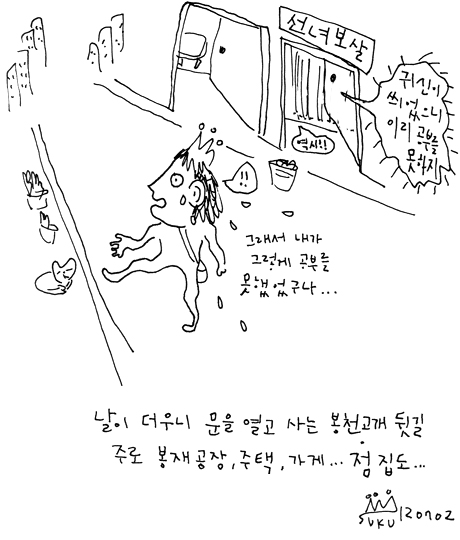 선녀보살
귀신이
씌었으니
이리 공부를
못하지
역시!!
!!
그래서 내가
그렇게 공부를
못했었구나...
날이 더우니 문을 열고 사는 봉천고개 뒷길
주로 봉재공장, 주택, 가게... 점집도...
SUKU 120702